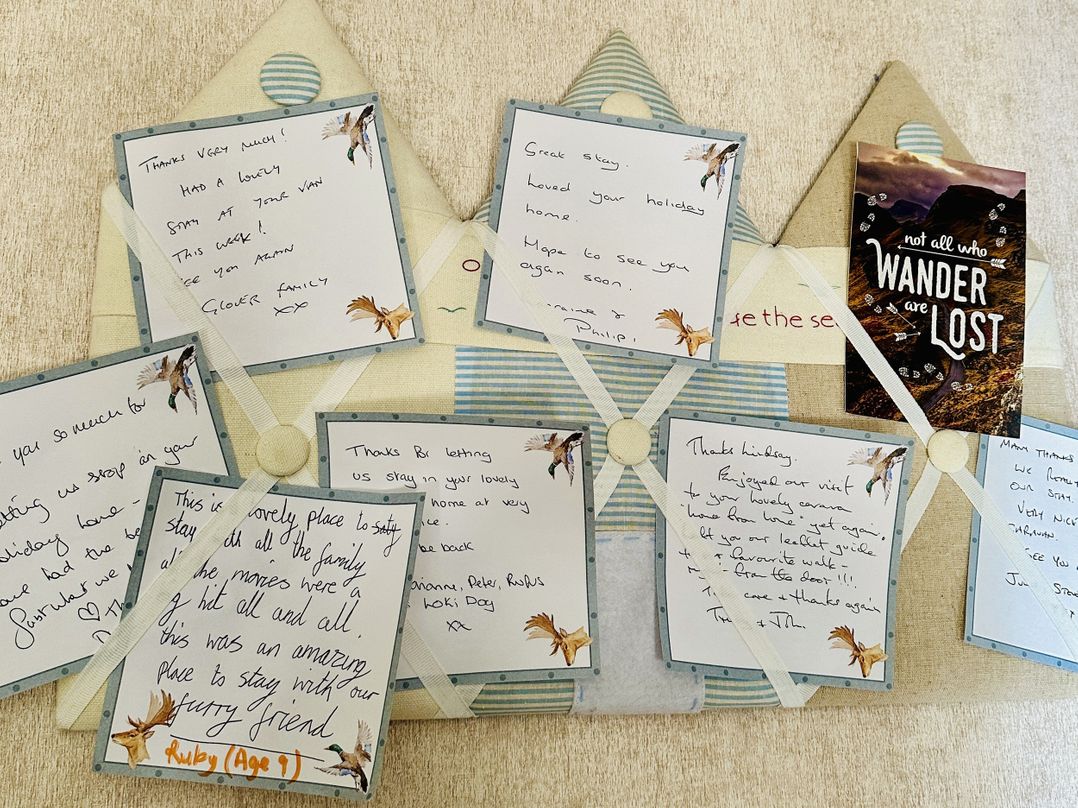 THANKS VERY MUCH!
HAD A LOVELY
STAY AT YOUR VAN
THIS WEEK!
YOU AGAIN
GLOVER FAMILY
XX
Great stay.
Loved your holiday
home.
Hope to see you
again soon.
&
Philip.
O
the se
not all who
WANDER
are LOST
you so much for
us stop in your
home -
had the be
Just what we
♡ Th
This is lovely place to saty
stay all the family
all the movies were a
hit all and all.
this was an amazing
place to stay with our
furry friend
Ruby (Age 9)
Thanks for letting
us stay in your lovely
home at very
be back
Peter, Rufus
Loki Dog
xx
Thanks Lindsay.
Enjoyed our visit
to your lovely carava
home from home - yet again.
let you our leaflet guide
favourite walk -
from the door !!!
care & thanks again
& John.
MANY THANKS
WE REALLY
OUR STAY.
VERY NICE
CARAVAN.
SEE YOU